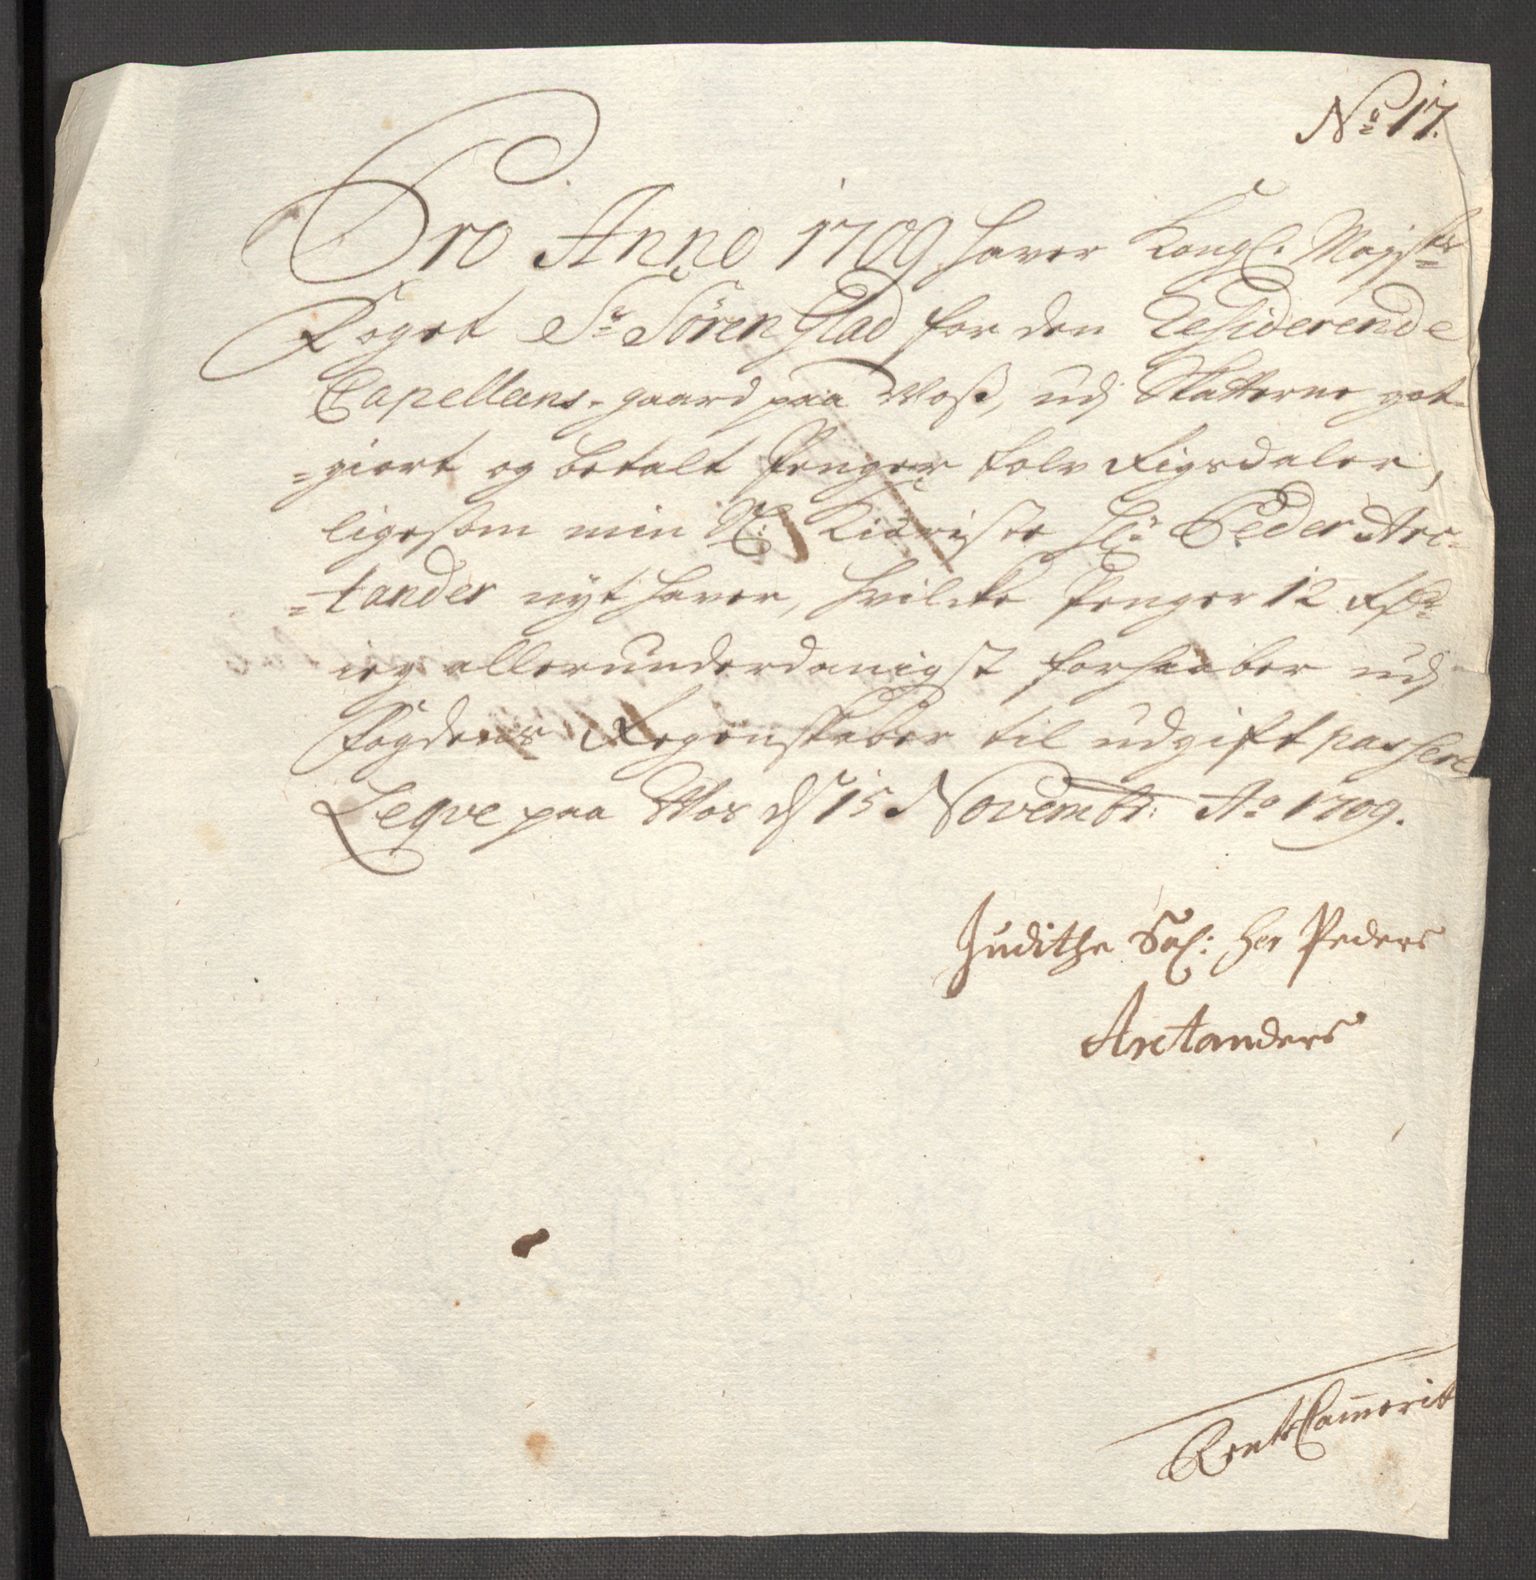 No 17.
Pro Anno 1709 haver Kongl. Majsts
Foget Sr Sören Glad for den Residerende
Capellans-gaard paa Voss, udj Skatterne got-
=giort og betalt Penger tolv Rigsdaler,
ligesom min Sl: Kieriste Hr Peder Arc-
=tander nyt haver, hvilcke Penger 12 Rdr
ieg allerunderdanigst forhaaber udj
Fogdens Regenskaber til udgift passere
Leqve paa Vos d 15 Novembr: Ao 1709.
Judithe Sal: her Peders
Arctanders
RenteCammerit